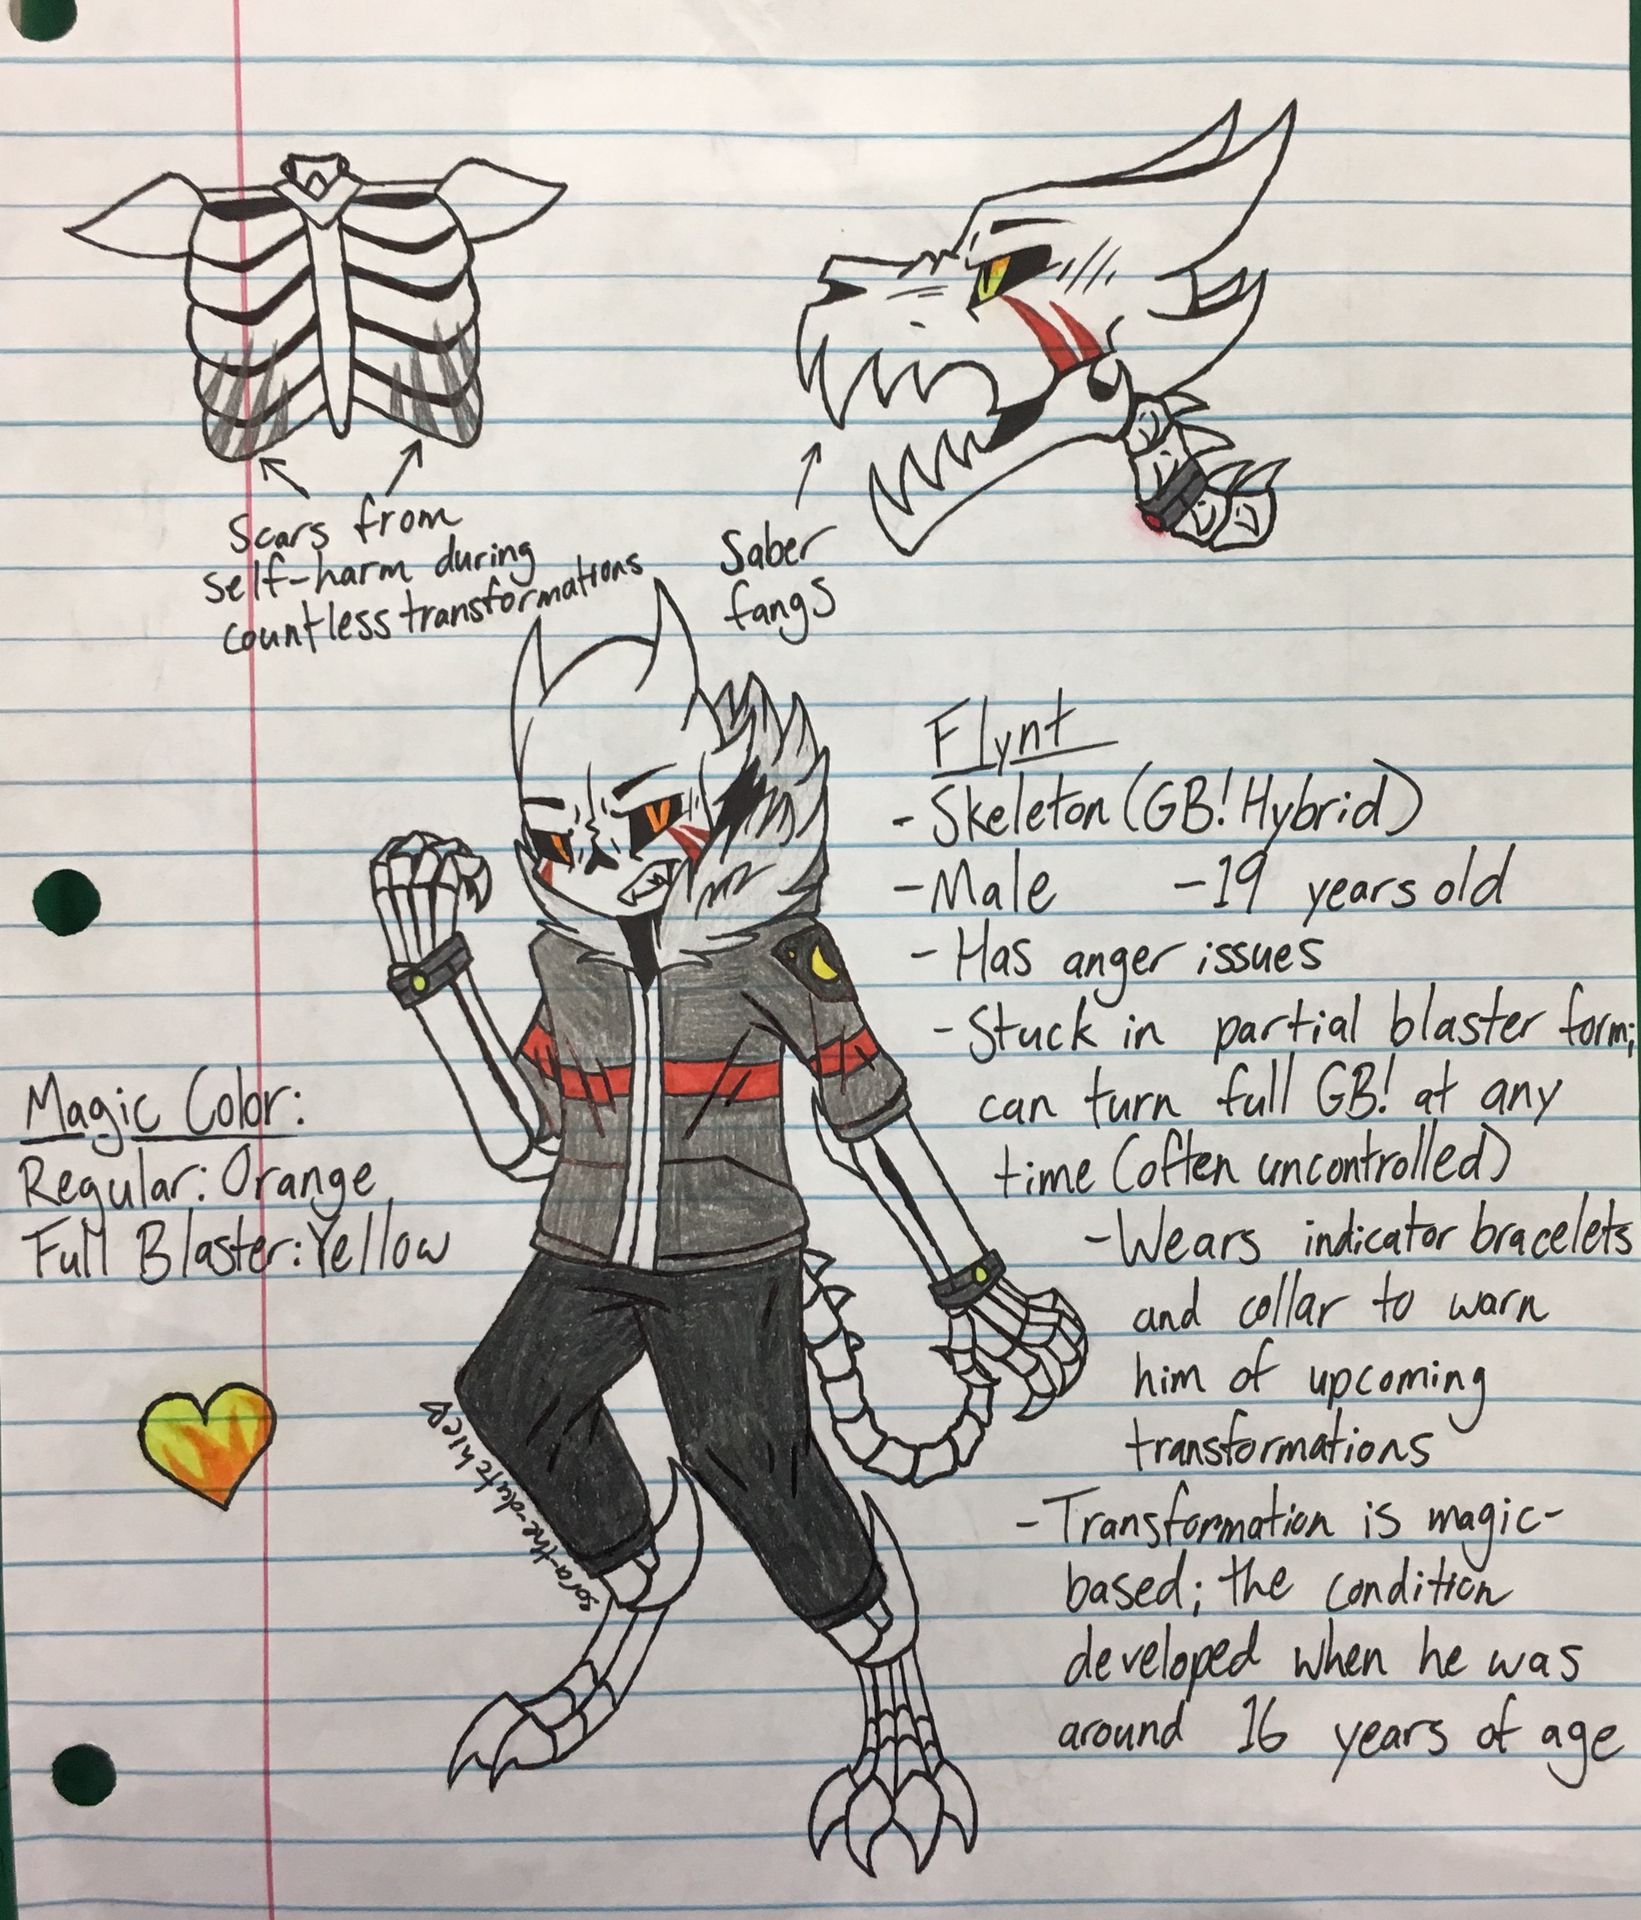 Scars from
self-harm during
countless transformations
Saber
fangs
Flynt
- Skeleton (GB! Hybrid)
- Male - 19 years old
- Has anger issues
- Stuck in partial blaster form;
can turn full GB! at any
time (often uncontrolled)
- Wears indicator bracelets
and collar to warn
him of upcoming
transformations
- Transformation is magic-
based; the condition
developed when he was
around 16 years of age
Magic Color:
Regular: Orange
Full Blaster: Yellow
sora-the-dutchie